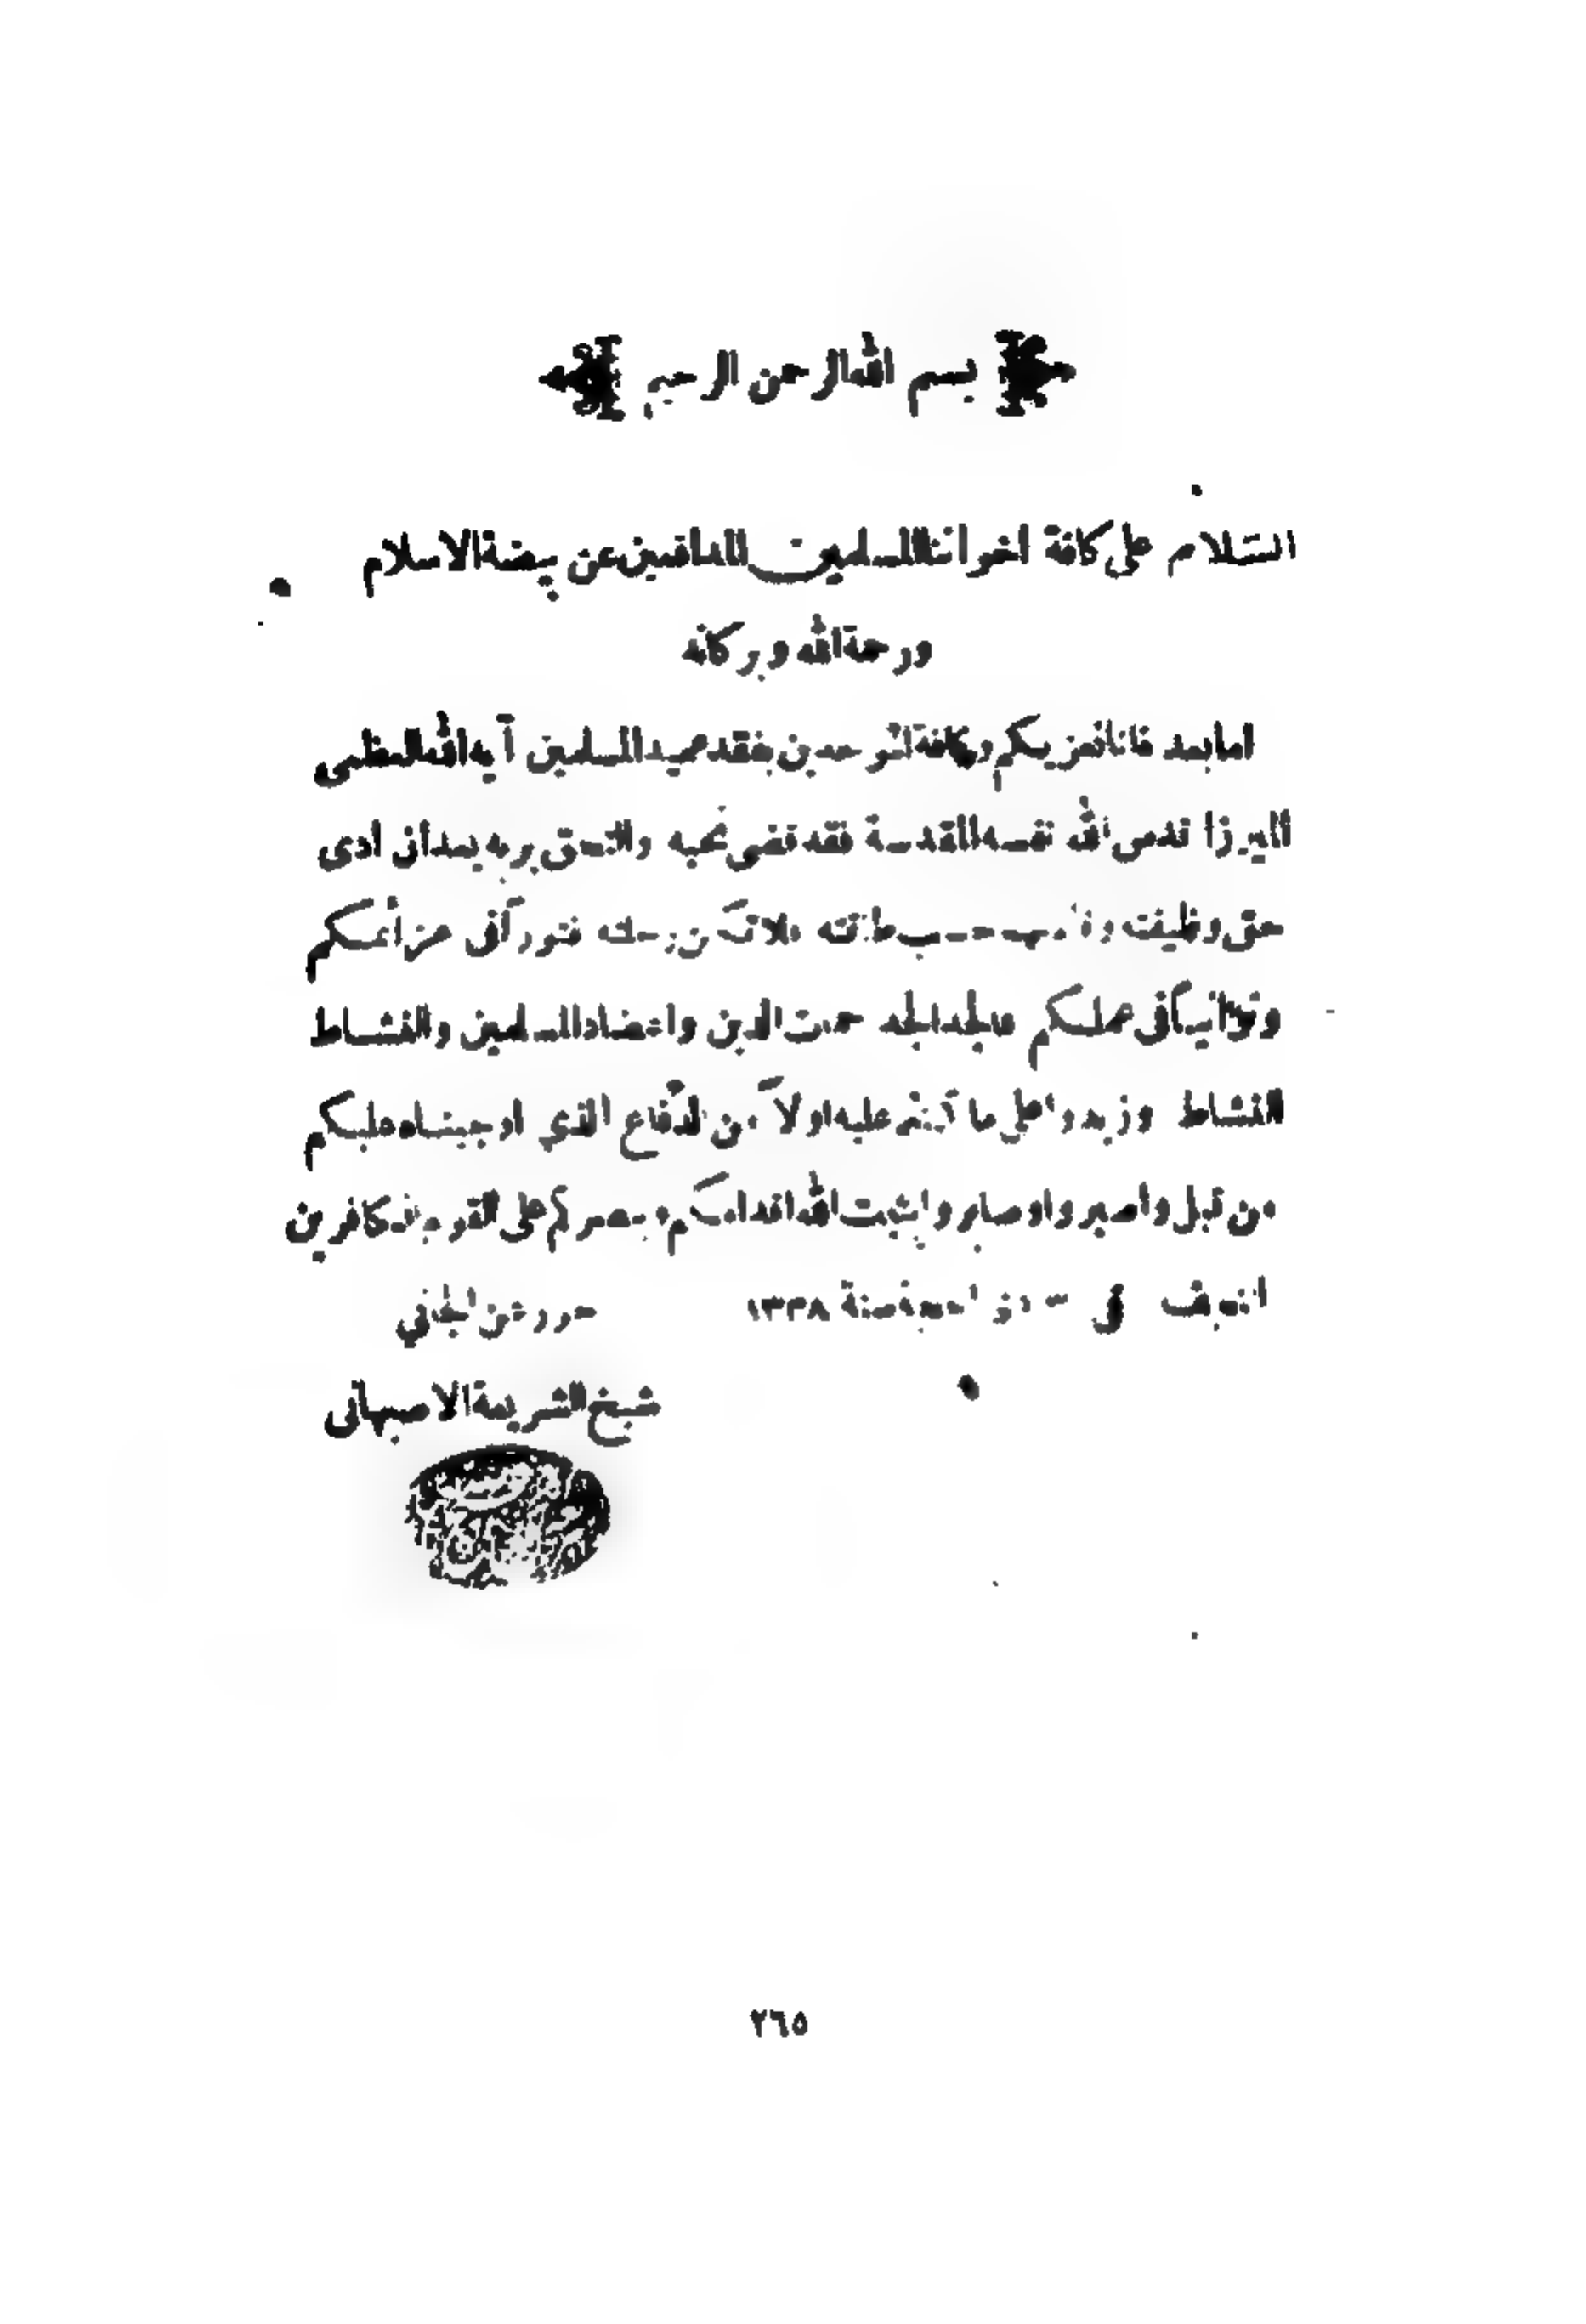 بسم الله الرحمن الرحيم
السلام على كافة اخواننا المسلمين المدافعين عن بيضة الاسلام
ورحمة الله وبركاته
اما بعد فانا نعزيكم وكافة الموحدين بفقد عميد المسلمين آية الله العظمى
الميرزا قدس الله نفسه المقدسة فقد قضى نحبه والتحق بربه بعد ان ادى
حق وظيفته حسب طاقته فلا تكن فتوراً في عزائمكم
وتوانياً في عملكم فالجد الجد حمات الدين واعضاد المسلمين والنشاط
النشاط وزيدوا على ما كنتم عليه اولاً من الدفاع الذي اوجبناه عليكم
من قبل واصبروا وصابروا يثبت الله اقدامكم وينصركم على القوم الكافرين
النجف في سنة ١٣٣٨ حرره عن الجاني
شيخ الشريعة الاصبهاني
٢٦٥